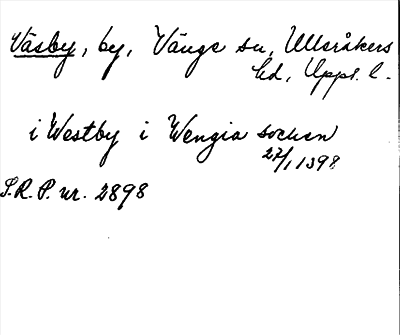 Väsby, by, Vänge sn, Ulleråkers
hd, Upps. l.
i Westby i Wengia socken
27/1 1398
S.R.P. nr. 2898